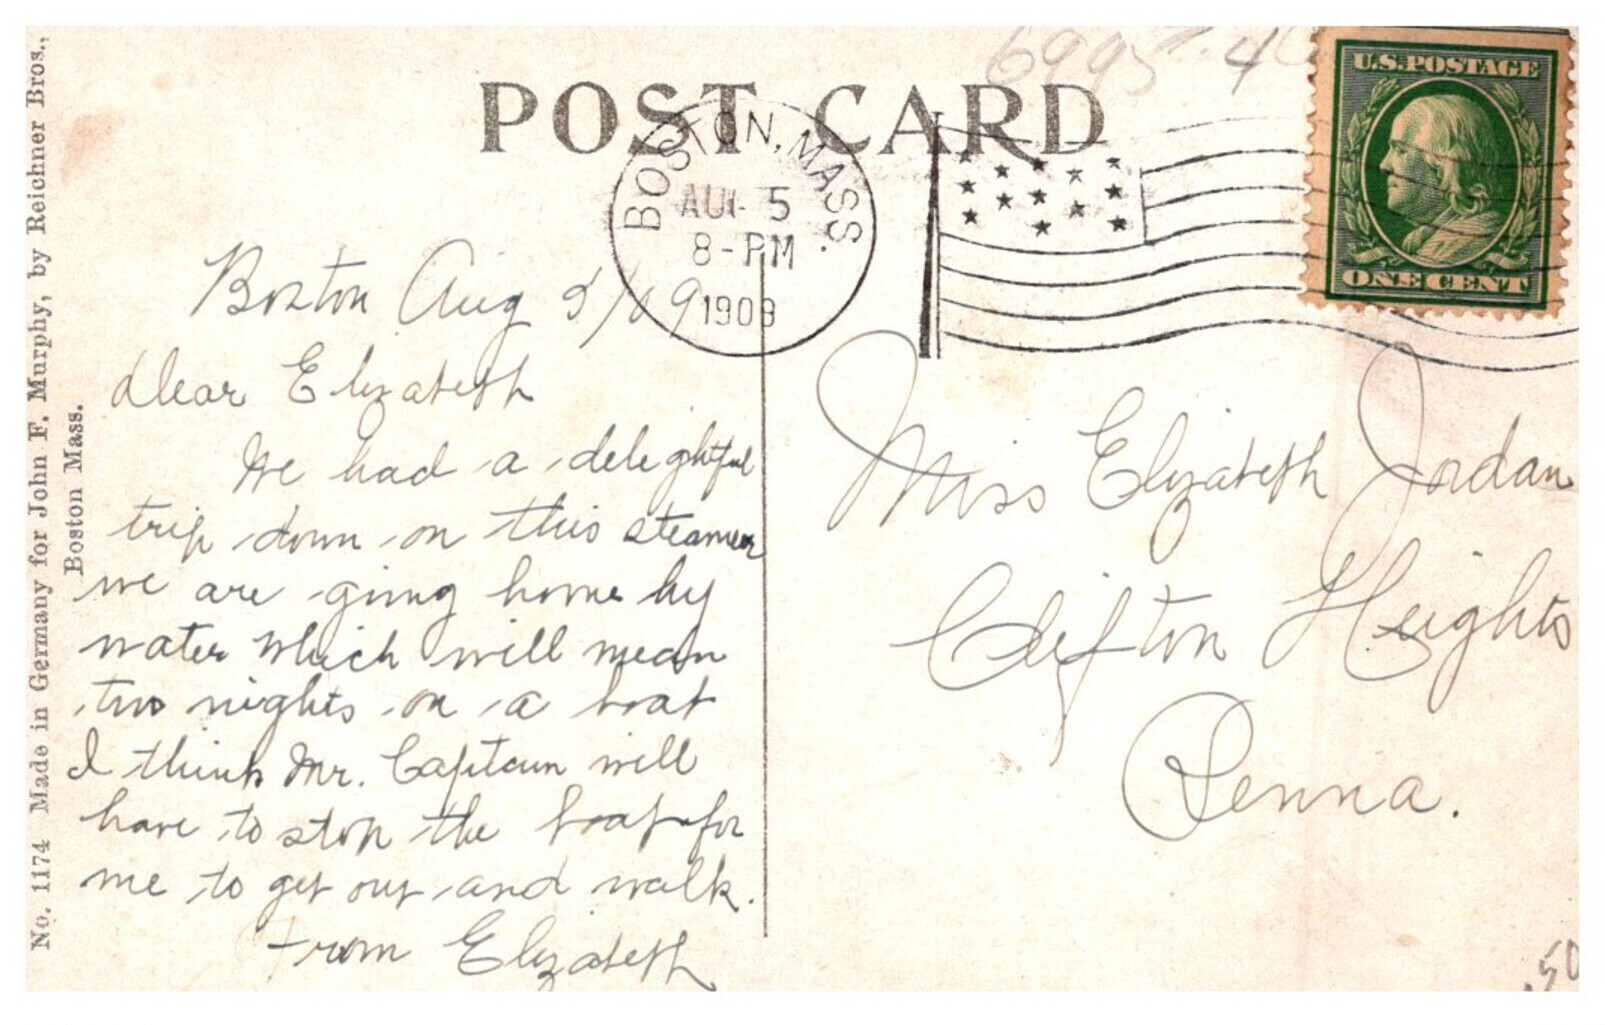 POST CARD
6995. 4
U.S. POSTAGE
ONE CENT
BOSTON, MASS.
AUG 5
8-PM
1909
Boston Aug 5/09
dear Elizabeth
We had a delightful
trip down on this steamer
we are going home by
water which will mean
two nights on a boat
I think Mr. Captain will
have to stop the boat for
me to get out and walk.
From Elizabeth
Miss Elizabeth Jordan
Clifton Heights
Penna.
No. 1174 Made in Germany for John F. Murphy, by Reichner Bros.,
Boston Mass.
.50